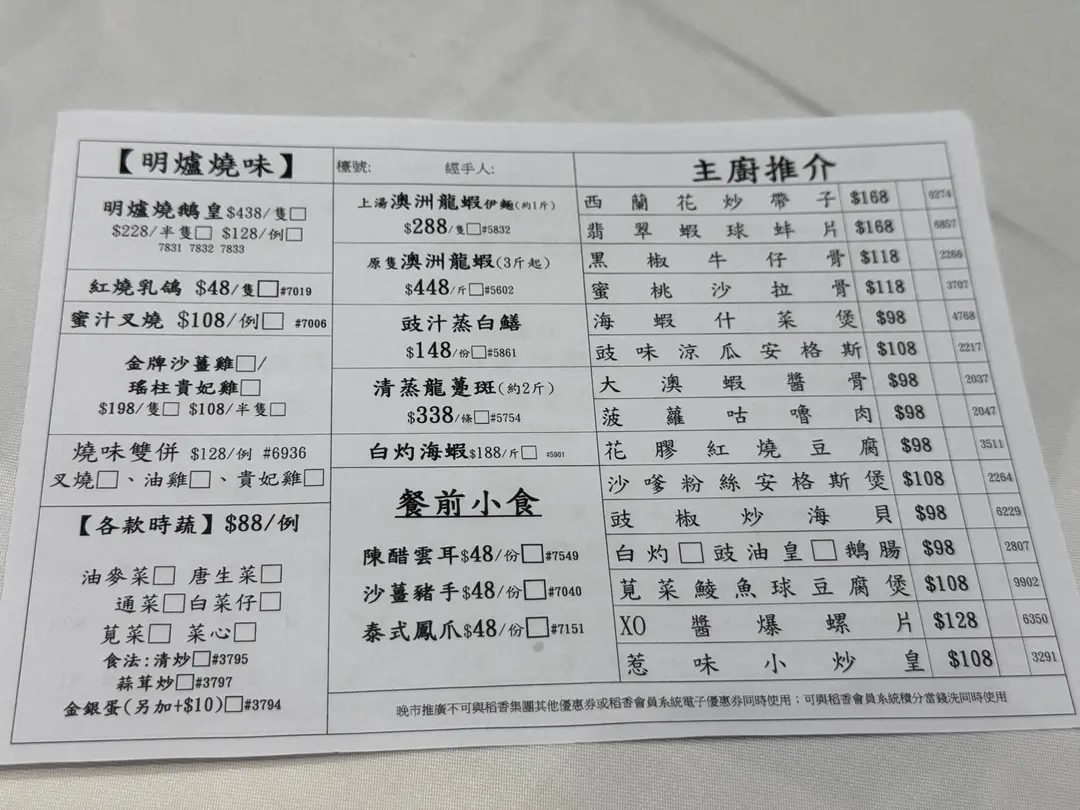 【明爐燒味】
明爐燒鵝皇$438/隻□
$228/半隻□ $128/例□
7831 7832 7833
紅燒乳鴿 $48/隻□#7019
蜜汁叉燒 $108/例□ #7006
金牌沙薑雞□/
瑤柱貴妃雞□
$198/隻□ $108/半隻□
燒味雙併 $128/例 #6936
叉燒□、油雞□、貴妃雞□
【各款時蔬】$88/例
油麥菜□ 唐生菜□
通菜□白菜仔□
莧菜□ 菜心□
食法:清炒□#3795
蒜茸炒□#3797
金銀蛋(另加+$10)□#3794
檯號: 經手人:
上湯澳洲龍蝦伊麵(約1斤)
$288/隻□#5832
原隻澳洲龍蝦(3斤起)
$448/斤□#5602
豉汁蒸白鱔
$148/份□#5861
清蒸龍躉斑(約2斤)
$338/條□#5754
白灼海蝦$188/斤□ #5901
餐前小食
陳醋雲耳$48/份□#7549
沙薑豬手$48/份□#7040
泰式鳳爪$48/份□#7151
主廚推介
西蘭花炒帶子 $168 6274
翡翠蝦球蚌片 $168 6857
黑椒牛仔骨 $118 2266
蜜桃沙拉骨 $118 3707
海蝦什菜煲 $98 4768
豉味涼瓜安格斯 $108 2217
大澳蝦醬骨 $98 2037
菠蘿咕嚕肉 $98 2047
花膠紅燒豆腐 $98 3511
沙嗲粉絲安格斯煲 $108 2264
豉椒炒海貝 $98 6229
白灼□豉油皇□鵝腸 $98 2807
莧菜鯪魚球豆腐煲 $108 9902
XO醬爆螺片 $128 6350
惹味小炒皇 $108 3291
晚市推廣不可與稻香集團其他優惠券或稻香會員系統電子優惠券同時使用；可與稻香會員系統積分當錢洗同時使用